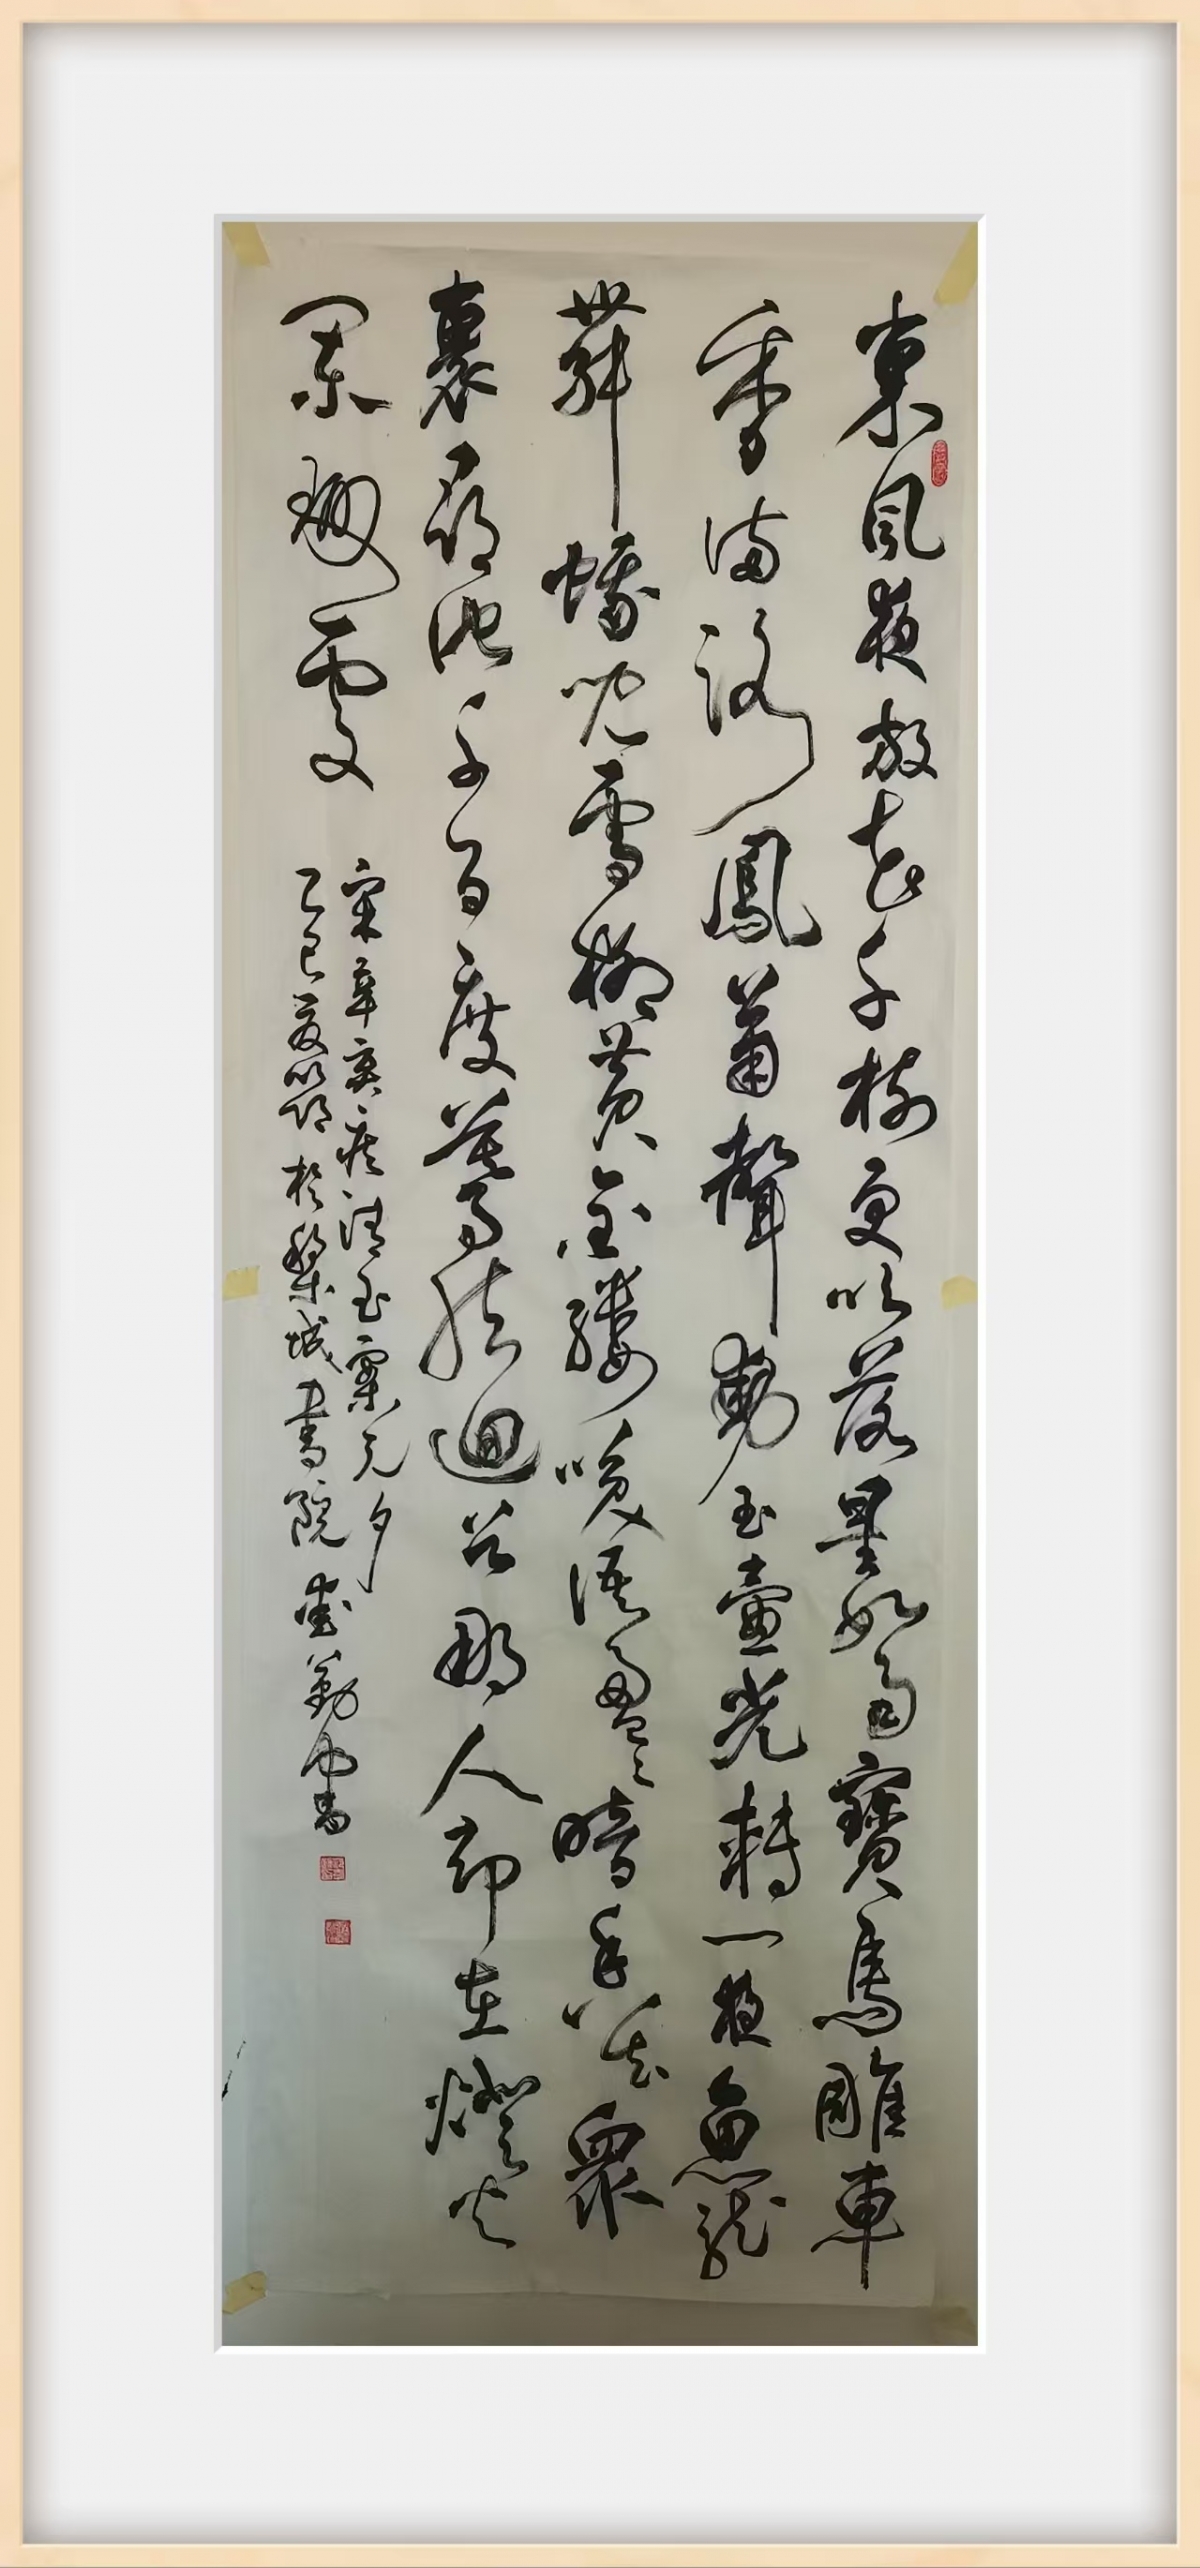 東風夜放花千樹更吹落星如雨寶馬雕車
香滿路鳳簫聲動玉壺光轉一夜魚龍
舞蛾兒雪柳黃金縷笑語盈盈暗香去眾
裏尋他千百度驀然迴首那人卻在燈火
闌珊處
宋辛棄疾清玉案元夕
乙巳夏於梨城書院勤書